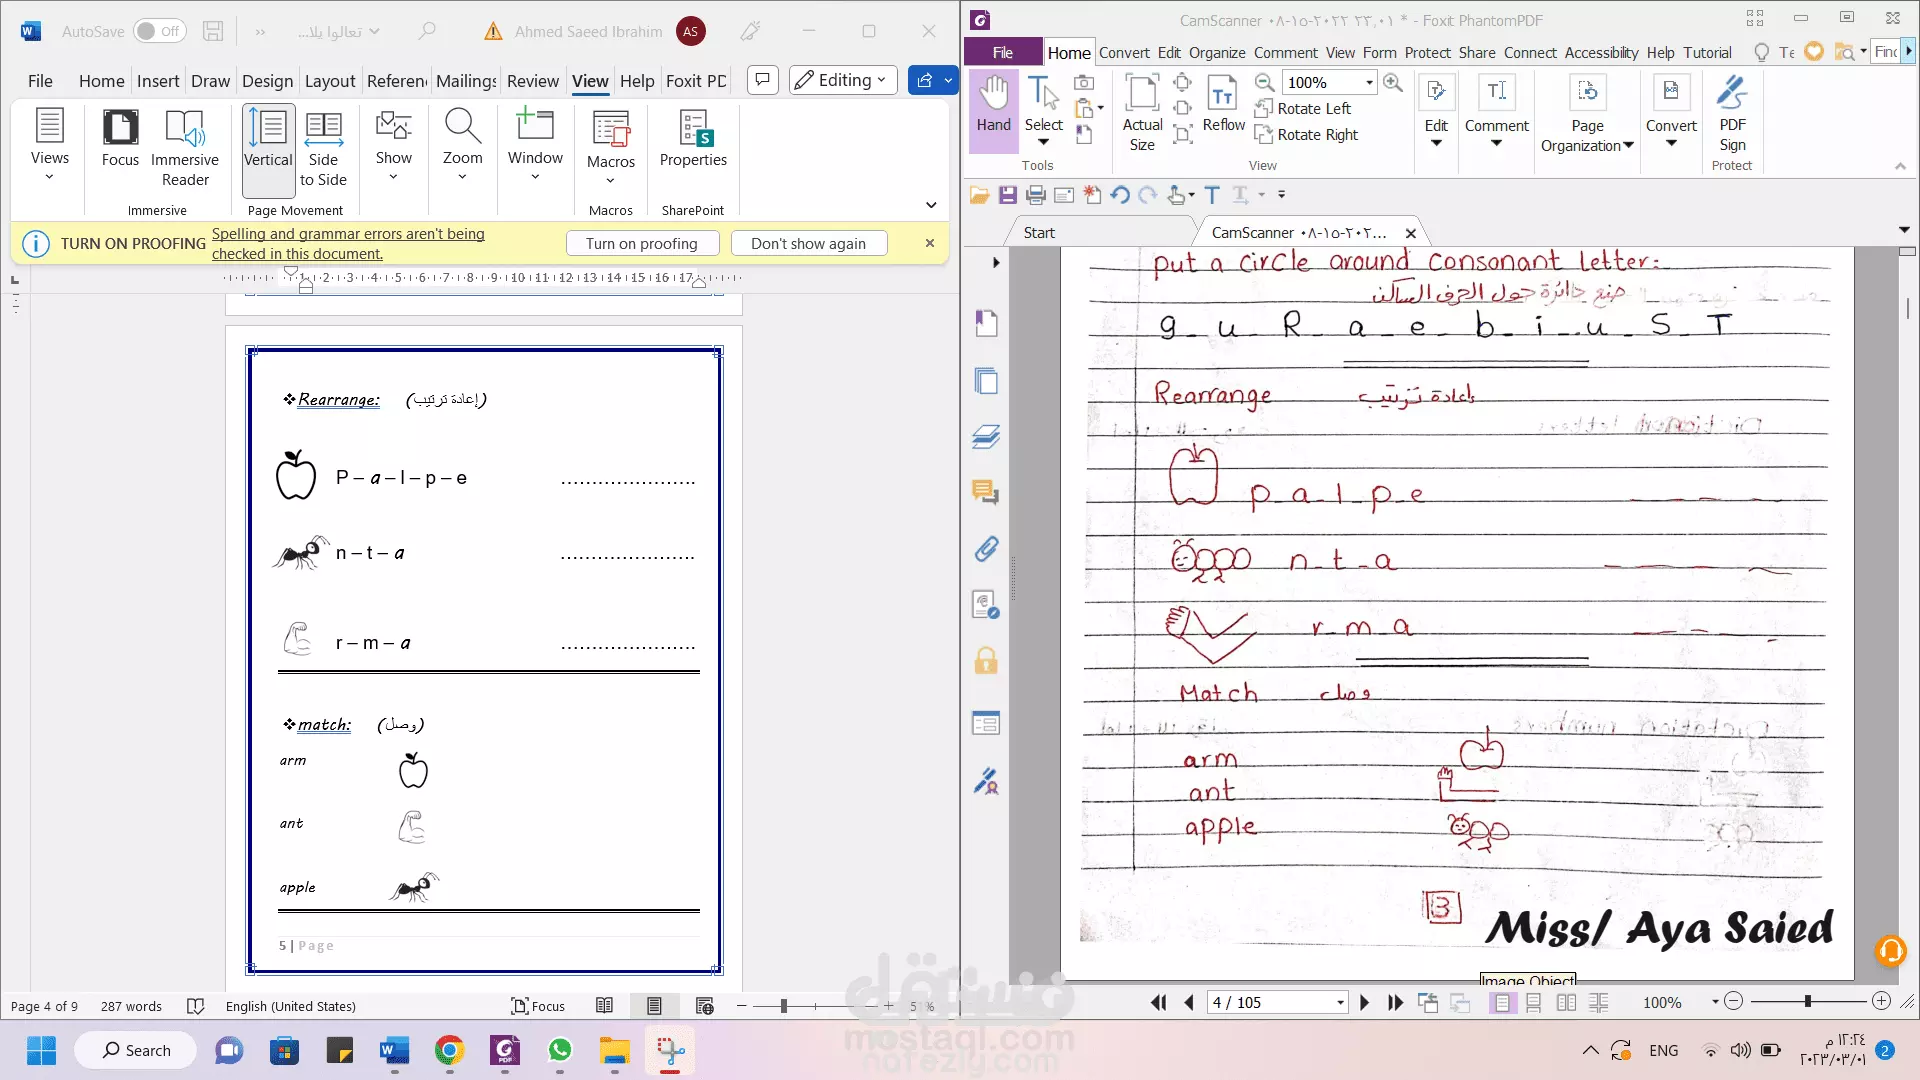 AutoSave Off
تعالوا يلا...
Ahmed Saeed Ibrahim AS
File Home Insert Draw Design Layout Referen Mailings Review View Help Foxit PD
Editing
Views
Focus
Immersive Reader
Vertical
Side to Side
Show
Zoom
Window
Macros
Properties
Immersive
Page Movement
Macros
SharePoint
TURN ON PROOFING Spelling and grammar errors aren't being checked in this document.
Turn on proofing
Don't show again
1 2 3 4 5 6 7 8 9 10 11 12 13 14 15 16 17
❖Rearrange: (إعادة ترتيب)
P – a – l – p – e ......................
n – t – a ......................
r – m – a ......................
❖match: (وصل)
arm
ant
apple
5 | Page
Page 4 of 9 287 words English (United States) Focus 51%
CamScanner ٠٨-١٥-٢٠٢٢ ٢٣,٠١ * - Foxit PhantomPDF
File Home Convert Edit Organize Comment View Form Protect Share Connect Accessibility Help Tutorial Te Find
Hand
Select
Actual Size
Reflow
100%
Rotate Left
Rotate Right
Edit
Comment
Page Organization
Convert
PDF Sign
Tools
View
Protect
Start
CamScanner ٠٨-١٥-٢٠٢...
put a circle around consonant letter:
صنع دائرة حول الحرف الساكن
g_ u_ R_ a_ e_ b_ i_ u_ S_ T
Rearrange إعادة ترتيب
p_a_l_p_e
n_t_a
r_m_a
Match وصل
arm
ant
apple
3
Miss/ Aya Saied
Image Object
4 / 105
100%
مستقل
mostaql.com
nafezly.com
Search
ENG
١٢:٢٤ م
٢٠٢٣/٠٣/٠١
2